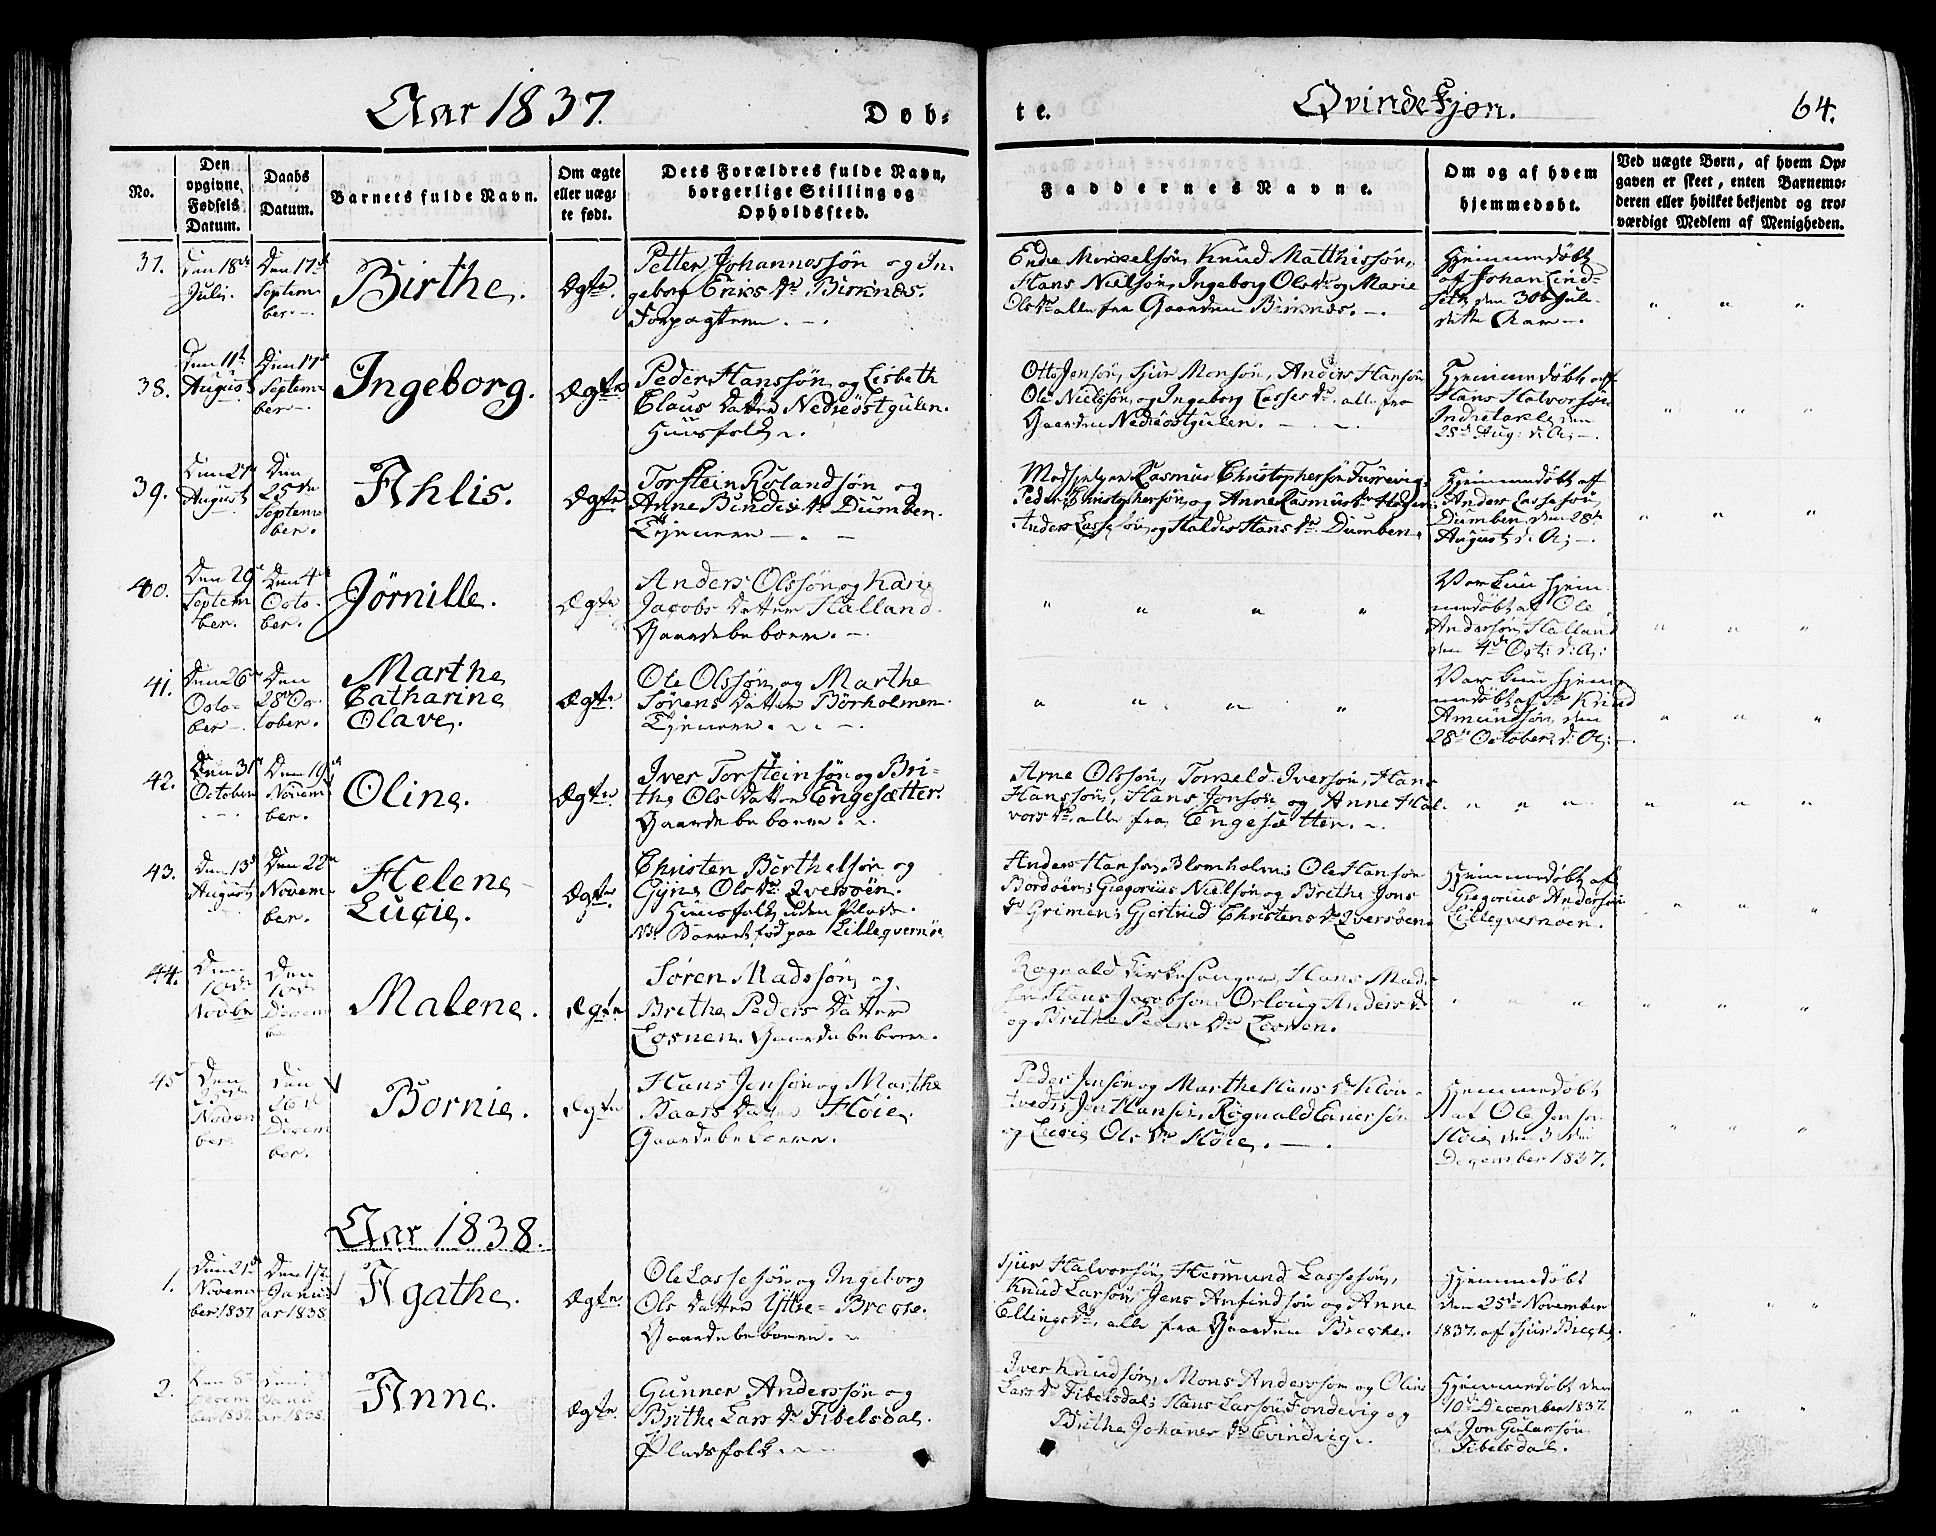 Aar 1837.
Døb-
te.
Qvindekjøn.
64.
No.
Den opgivne Fødsels Datum.
Daabs Datum.
Barnets fulde Navn.
Om ægte eller uægte født.
Dets Forældres fulde Navn, borgerlige Stilling og Opholdssted.
Faddernes Navne.
Om og af hvem hjemmedøbt.
Ved uægte Børn, af hvem Op-
gaven er skeet, enten Barnemo-
deren eller hvilket bekjendt og tro-
værdigt Medlem af Menigheden.
37.
Den 18de
Juli.
Den 17de
Septem
ber.
Birthe.
Ægte.
Petter Johannessøn og In-
geborg Eriks Dr Birknes.
Forpagtere.
Endre Mikkelsøn, Knud Matthissøn,
Hans Nielsøn, Ingeborg Ols Dr og Marie
Ols Dr alle fra Gaarden Birknes.
Hjemmedøbt
af Johan Lind-
seth den 30te Juli
dette Aar.
38.
Den 11te
August
Den 17de
Septem-
ber
Ingeborg.
Ægte
Peder Hanssøn og Lisbeth
Claus Datter Nedreöstgulen.
Huusfolk.
Otto Jensøn, Sjur Monsøn, Anders Hansøn
Ole Nielssøn, og Ingeborg Lasses Dr, alle fra
Gaarden Nedreöstgulen.
Hjemmedøbt af
Hans Halvorsøn
Indretakle den
28de Aug: d: A:
39.
August
Den
25de
Septem-
ber.
Ahlis.
Ægte
Torstein Rolandsøn og
Anne Bendix Dr Dumben.
Tjenere
Medhjelper Rasmus Christophersøn Furrevig
Peder Christophersøn, og Anne Rasmus Dr
Anders Lassesøn, og Haldis Hans Dr Dumben.
Hjemmedøbt af
Anders Lassesøn
Dumben, den 28de
August d: A:
40.
Den 29de
Septem
ber.
Den 4de
Octo-
ber.
Jørnille.
Ægte
Anders Olssøn og Kari
Jacobs Datter Halland.
Gaardebeboere.
Var kun hjem-
medøbt af Ole
Anderssøn Halland
den 4de Oct: d: A:
41.
Den 26de
Octo-
ber
Den
28de Oc-
tober.
Marthe
Catharine
Olave.
Ægte
Ole Olssøn og Marthe
Sørens Datter Börholmen
Tjenere.
Var kun hjem-
medøbt af Sr Knud
Amundsøn, den
28de October, d: A:
42.
Den 31te
October
Den 19de
Novem
ber.
Oline.
Ægte
Iver Torsteinsøn og Bri-
the Ols Datter Engesætter.
Gaardebeboere.
Arne Olssøn, Tomeld Iversøn, Hans
Hanssøn, Hans Jonsøn og Anne Hal-
vors Dr alle fra Engesætter.
43.
Den 13de
August
Den 22de
Novem-
ber.
Helene
Lucie.
Ægte
Christen Berthelsøn og
Gjøne Ols Dr Qversøen.
Huusfolk uden Plads.
NB. Barnet født paa Lilleqvernøe
Anders Hansøn, Blomholm; Ole Hansøn
Bordøen; Gregorius Nielsøn og Brithe Jons
Dr Grimen; Gjertrud Christens Dr Qversøen.
Hjemmedøbt af
Gregorius Andersøn
Lilleqvernøen.
44.
Den
10de
Novbr
Den
10de
Decem
ber
Malene.
Ægte
Søren Madssøn og
Brithe Peders Datter
Losnen. Gaardebeboere.
Rognald Kirkesanger, Hans Mads-
søn, Hans Jacobsøn, Orloug Anders Dr
og Brithe Peders Dr Losnen.
45
Den
Novem
ber.
Den
26de
Decem
ber.
Bornie.
Ægte
Hans Jensøn og Marthe
Baars Datter Høie.
Gaardebeboere.
Peder Jensøn og Marthe Hans Dr
Jen Hansøn, Rognald Einersøn
og Lucie Ols Dr Høie.
Hjemmedøbt
af Ole Jensøn
Høie den 3die
December 1837.
Aar 1838.
1.
Den 21de
Novem-
ber 1837
Den 1ste
Janu-
ar 1838
Agathe.
Ægte.
Ole Lassesøn og Ingeborg
Ols Datter Ytre-Brekke.
Gaardebeboere.
Sjur Halvorsøn, Hermund Lassesøn,
Knud Larsøn, Jens Anfindsøn og Anne
Ellings Dr, alle fra Gaarden Brekke.
Hjemmedøbt
den 25de November
1837. af Sjur Brekke.
2.
Decem
ber 1837.
Janu
ar 1838.
Anne.
Ægte.
Gunner Anderssøn og
Brithe Lars Dr Fibelsdal.
Pladsfolk.
Iver Knudsøn, Mons Anderssøn og Oline
Lars Dr Fibelsdal; Hans Larsøn Tondevig og
Brithe Johanes Dr Evindvig.
Hjemmedøbt den
10de December 1837.
af Jon Gularsøn
Fibelsdal.